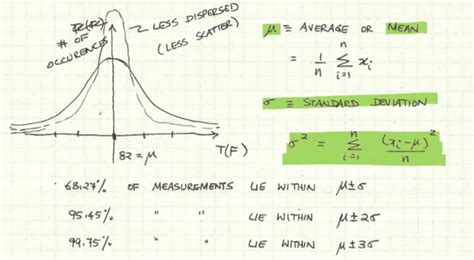 # OF
OCCURENCES
LESS DISPERSED
(LESS SCATTER)
82 = μ
T(F)
μ ≡ AVERAGE OR MEAN
= 1/n Σ_{i=1}^{n} x_i
σ ≡ STANDARD DEVIATION
σ² = Σ_{i=1}^{n} (x_i-μ)²/n
68.27% OF MEASUREMENTS LIE WITHIN μ±σ
95.45% " " LIE WITHIN μ±2σ
99.75% " " LIE WITHIN μ±3σ